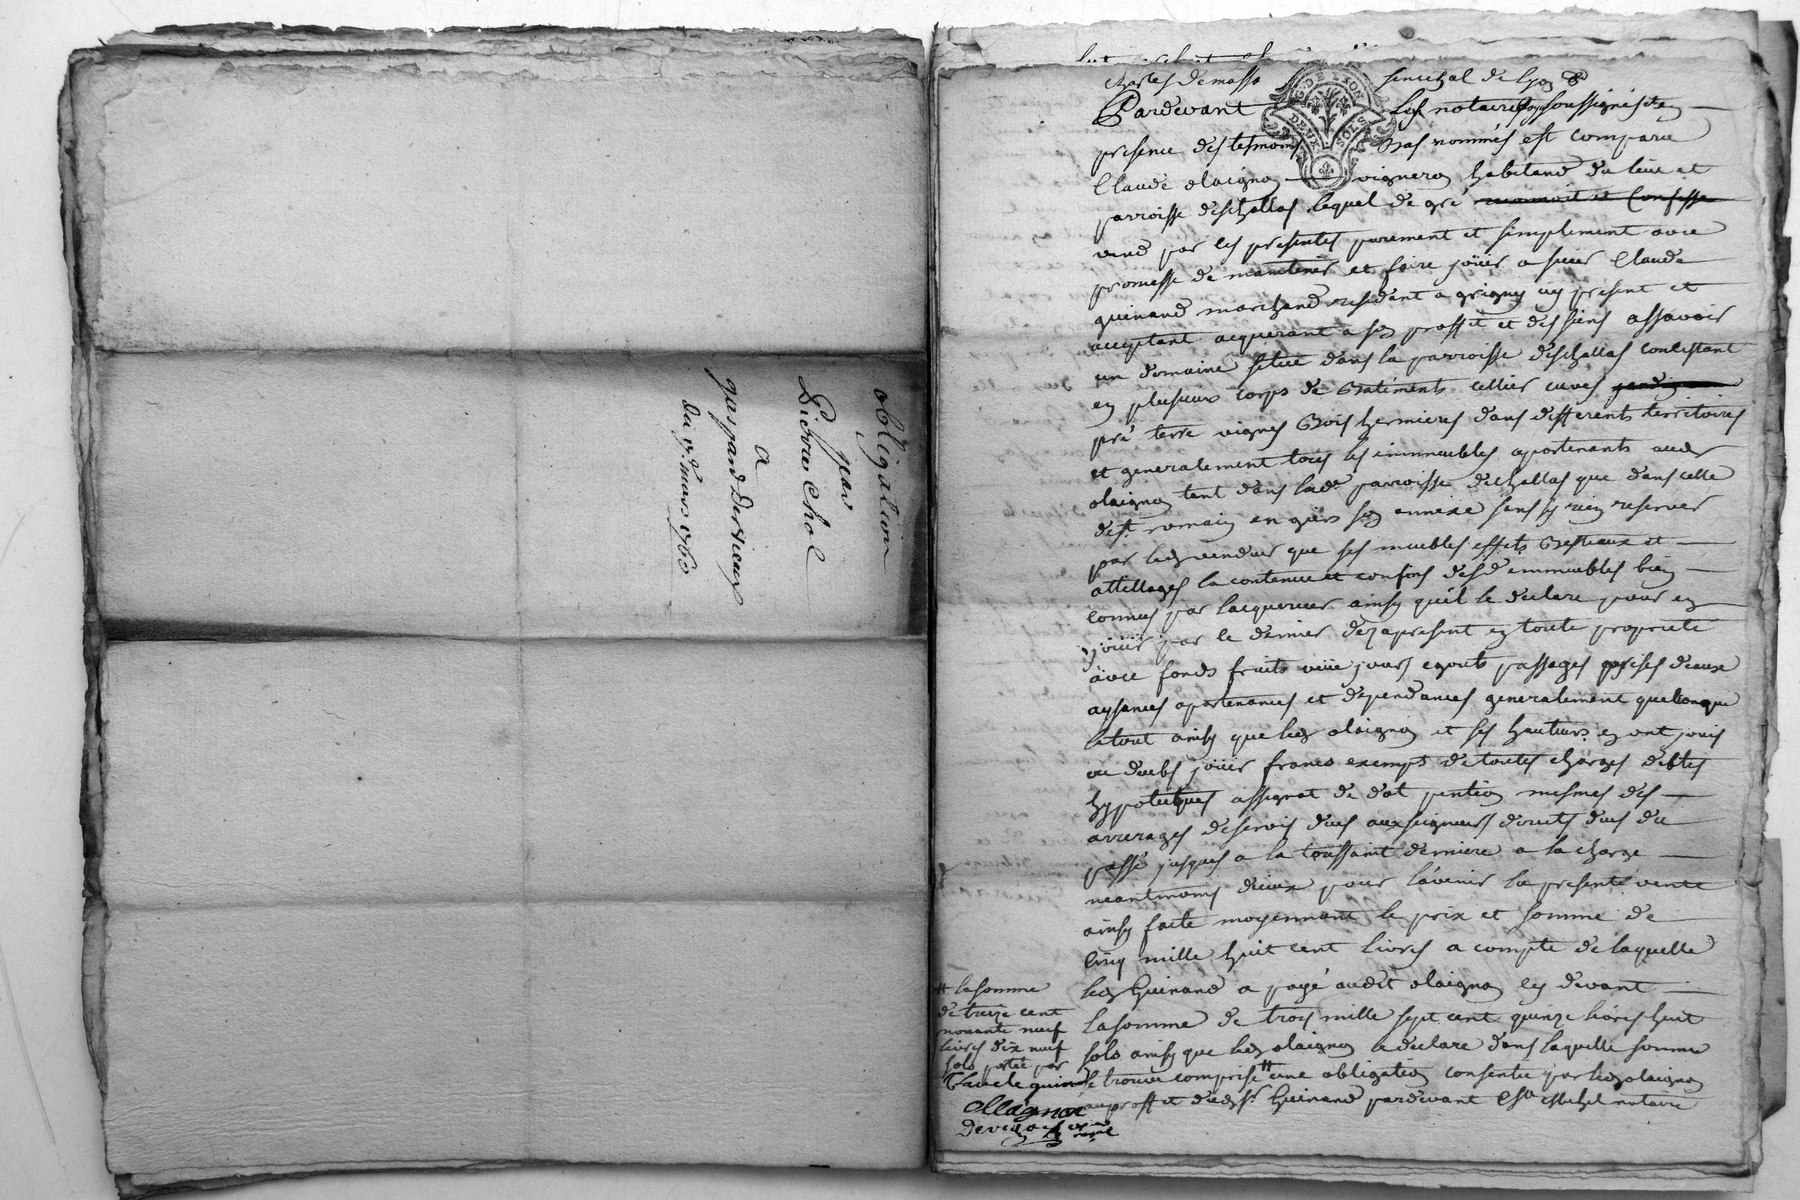 obligation
jean
Pierre Chol
a
gaspard Dervieux
du 9e. mars 1760
Charles de masso senechal de lyon &
Pardevant les notaires royx soussignés et en
presence des temoins bas nommés est comparu
Claude olaignon vigneron habitand du lieu et
parroisse deschallas lequel de gré reconnoit et Confesse
vend par les presentes purement et simplement avec
promesse de maintenir et faire joüir a sieur Claude
guinand marchand residant a grigny icy present et
acceptant acquerant a son proffit et des siens assavoir
un domaine situé dans la parroisse deschallas consistant
en plusieurs corps de Batiments cellier cuves jardin
pré terre vignes Bois hermieres dans differents territoires
et generalement tous les immeubles apartenants audt
olaignon tant dans lade. parroisse dechallas que dans celle
de st. romain en giers son annexe sans sy rien reserver
par ledt vendeur que ses meubles effets Bestiaux et
attellages la contenue et confins desd immeubles bien
connus par lacquereur ainsy quil le declare pour en
joüir par ce dernier dez apresent en toute proprieté
avec fonds fruits veüe jours egouts passages prises deaux
aysances apartenances et dependances generalement quelconque
letout ainsy que ledt olaignon et ses hauteurs en ont jouis
ou deub joüir francs exempts de toutes charges debtes
hypoteques assignat de dot pention mesmes des
arrerages deservis deus aux seigneurs droits dus du
passé jusques a la toussaint derniere a la charge
neantmoins diceux pour lavenir la presente vente
ainsy faite moyennant le prix et somme de
Cinq mille huit cent livres a compte de laquelle
ledt Guinand a payé audit olaignon cy devant
lasomme de trois mille sept cent quinze livres huit
sols ainsy que ledt olaignon a declare dans laquelle somme
se trouve comprise # une obligation consentie par ledt olaignon
au proffit dudt sr. Guinand pardevant notaire
# lasomme
de treize cent
nonante neuf
livres dix neuf
sols portée par
Claude guinand
ollagnon